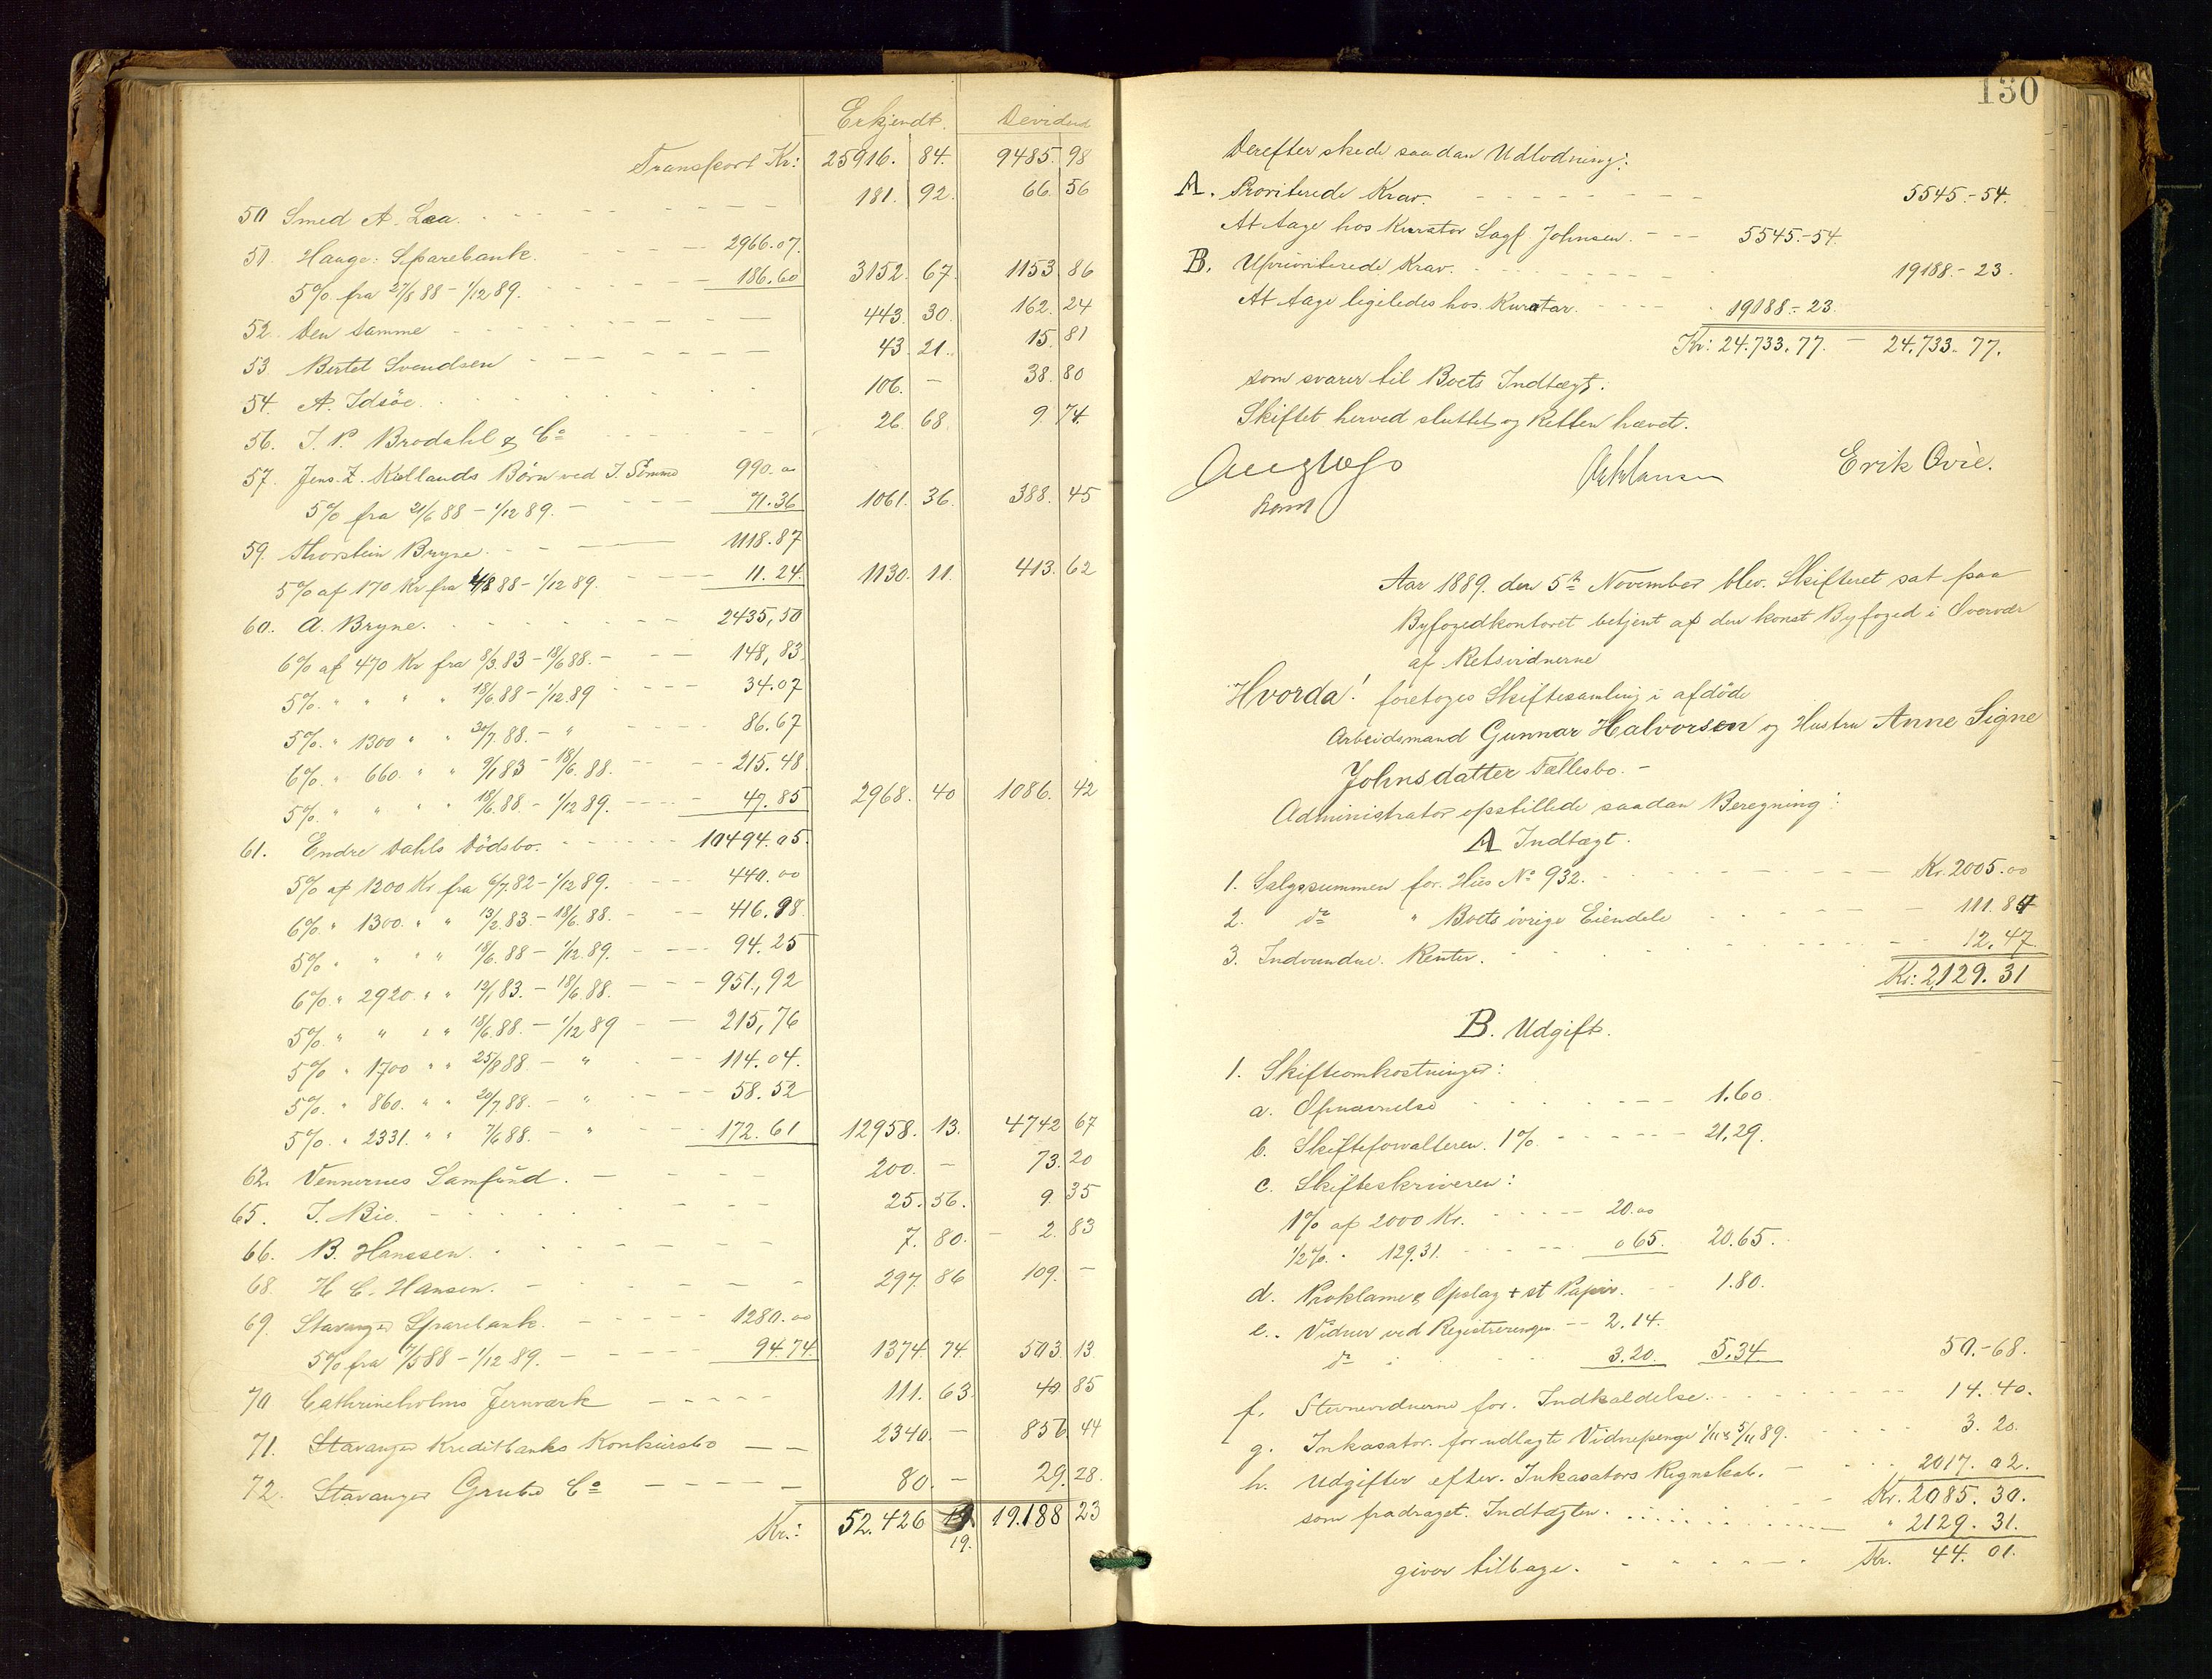 Erkjendt. Devidend
Transport Kr: 25916. 84. 9485. 98
50 Smed A. Laa. 181. 92. 66. 56
51. Haugs: Sparebank. 2966.07.
5% fra 27/8 88 - 1/12 89. 186.60 3152. 67. 1153. 86
52. Den samme 443. 30. 162. 24
53. Bertel Svendsen 43. 21. 15. 81
54. A. Idsöe. 106. - 38. 80
56. I. P. Brodahl & Co 26. 68. 9. 74.
57. Jens. Z. Kiellands Börn ved I. Sömme 990.00
5% fra 21/6 88 - 1/12 89. 71.36 1061. 36. 388. 45
59. Thorstein Bryne. 1118.87
5% af 170 Kr fra 4/8 88 - 1/12 89. 11.24. 1130. 11. 413. 62
60. A. Bryne. 2435,50
6% af 470 Kr fra 8/3.83 - 18/6 88. 148,83.
5%. " " " " 18/6.88 - 1/12.89 34.07
5%. " 1300 " " 30/7.88. - " 86.67
6%. " 660. " " 9/1 83 - 18/6.88. 215.48.
5%. " " " " 18/6.88 - 1/12 89. 47.85 2968. 40 1086. 42
61. Endre Dahls Dödsbo. 10494.05.
5% af 1200 Kr fra 6/7.82 - 1/12 89. 440.00
6%. " 1300. " " 13/2.83 - 18/6.88. 416.98.
5%. " " " " 18/6.88 - 1/12.89. 94.25
6%. " 2920. " " 12/1 83. - 18/6 88. 951,92
5%. " " " " 18/6.88. - 1/12 89 215,76
5% " 1700 " " 25/8 88 - " 114.04.
5%. " 860. " " 20/7.88. - " 58.52
5%. " 2331. " " 7/6 88. - " 172.61 12958. 13. 4742 67
62. Vennernes Samfund. 200. - 73. 20
65. I. Bie. 25. 56. 9. 35
66. B. Hanssen. 7. 80. - 2. 83
68. H. C. Hansen. 297. 86 109. -
69. Stavanger Sparebank. 1280.00
5% fra 7/5 88 - 1/12 89. 94.74. 1374. 74. 503. 13
70 Cathrineholms Jernværk 111. 63. 40. 85
71. Stavanger Kreditbanks Konkursbo 2340. - 856. 44
72. Stavanger Grube Co 80. - 29. 28.
Kr.: 52.426 19. 19.188 23
19.
130
Derefter skede saadan Udlodning:
A. Prioriterede Krav. 5545.-54.
At tage hos Kurator Sagf. Johnsen. 5545.-54.
B. Uprioriterede Krav. 19188.-23.
At tage ligeledes hos Kurator. 19188.-23.
Kr: 24.733.77. - 24.733.77.
som svarer til Boets Indtægt.
Skiftet herved sluttet og Retten hævet.
Erik Qvie.
Konst
Aar 1889. den 5te November blev. Skifteret sat paa
Byfogedkontoret betjent af den konst Byfoged i Overvær
af Retsvidnerne
Hvorda! foretoges Skiftesamling i afdöde
Arbeidsmand Gunnar Halvorsen og Hustru Anne Signe
Johnsdatter Fællesbo. -
Administrator opstillede saadan Beregning:
A Indtægt.
1. Salgssummen for. Hus No 932. Kr. 2005.00
2. do " Boets övrige Eiendele 111.84
3. Indvundne. Renter. 12.47.
Kr: 2129.31
B. Udgift.
1. Skifteomkostninger:
a. Opnævnelse 1.60.
b. Skifteforvalteren. 1%. 21,29.
c. Skifteskriveren:
1% af 2000 Kr. 20.00
1/2%. " 129.31. 0 65. 20.65.
d. Proklama & Opslag + st Papir. 1.80.
e.. Vidner ved Registreringen 2.14.
do 3.20. 5.34. 50.-68.
f. Stevnevidnerne for. Indkaldelse. 14.40.
g. Inkasator. for udlagte Vidnepenge 4/11 & 5/11 89. 3.20.
h. Udgifter efter. Inkasators Regnskab. 2017.02.
Kr. 2085.30.
som fradraget. Indtægten. " 2129.31.
giver tilbage. Kr. 44.01.